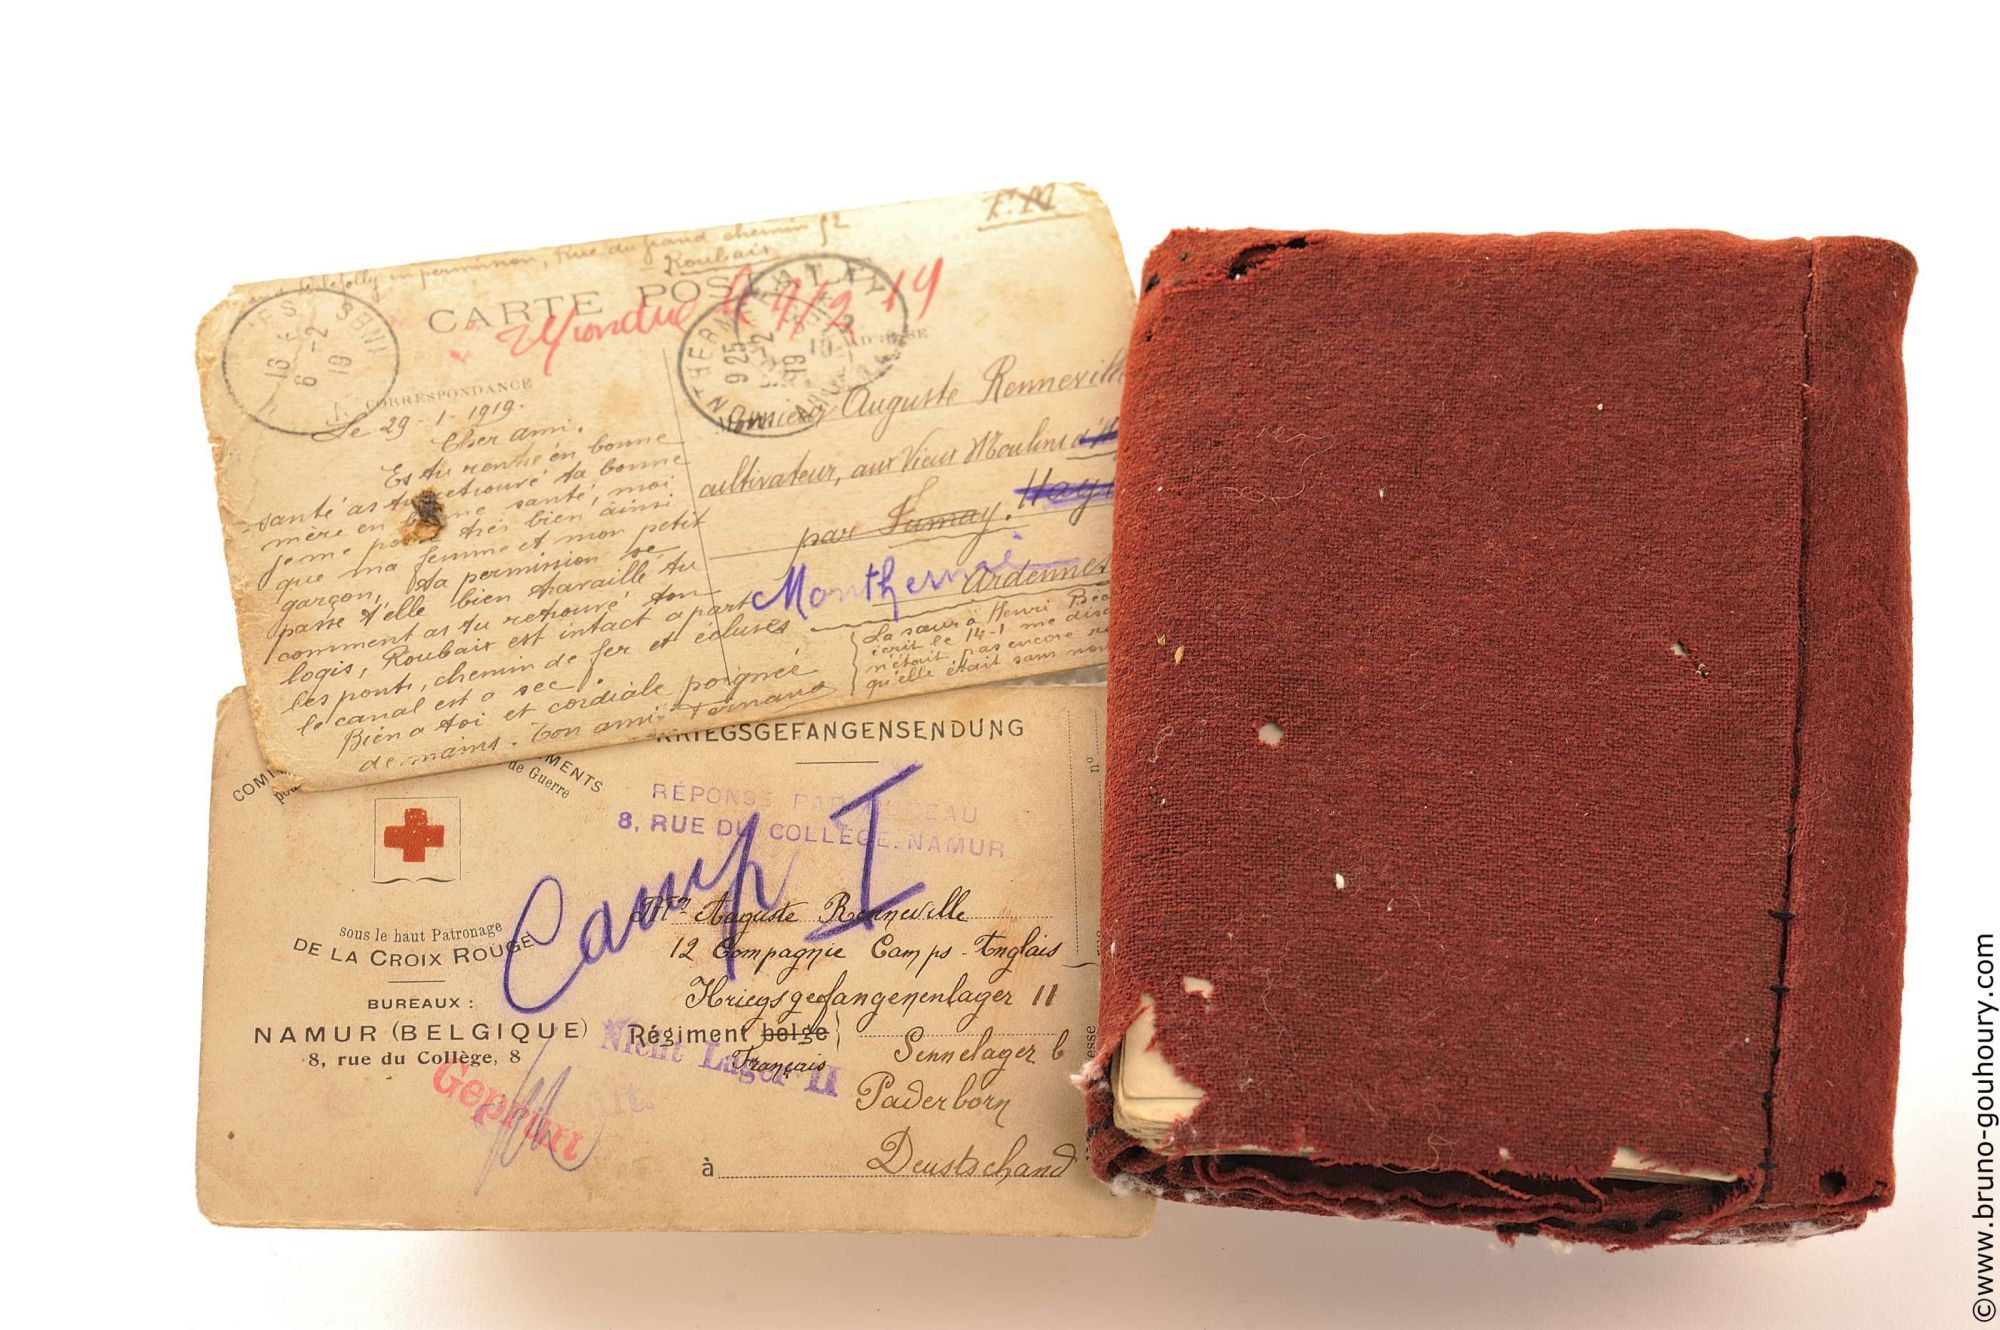 en permission, Rue du grand chemin 52
Roubaix
F.M
CARTE POSTALE
Répondue le 9/2 19
CORRESPONDANCE
13
6-2
19
MONTHERME
9 25
19
ARDENNES
Le 29-1-1919.
Cher ami.
Es tu rentré en bonne
santé as tu retrouvé ta bonne
mère en bonne santé, moi
je me porte très bien ainsi
que ma femme et mon petit
garçon, ta permission se
passe t'elle bien travaille tu
comment as tu retrouvé ton
logis, Roubaix est intact apart
les ponts, chemin de fer et écluses
le canal est a sec.
Bien a toi et cordiale poignée
de mains. Ton ami Fernand
Monsieur Auguste Renneville
cultivateur, aux Vieux Moulins
par Fumay.
Monthermé
Ardennes
La sœur à Henri
écrit le 14-1 me
n'était pas encore
qu'elle était sans
KRIEGSGEFANGENSENDUNG
MENTS
de Guerre
RÉPONSE PAR BUREAU
8, RUE DU COLLÈGE. NAMUR
Camp I
sous le haut Patronage
DE LA CROIX ROUGE
BUREAUX :
NAMUR (BELGIQUE)
8, rue du Collège, 8
Geprüft
Nicht Lager II
Mr Auguste Renneville
12 Compagnie Camps-Anglais
Kriegsgefangenenlager II
Régiment belge
Français
Sennelager b
Paderborn
à Deustschand
nº
©www.bruno-gouhoury.com